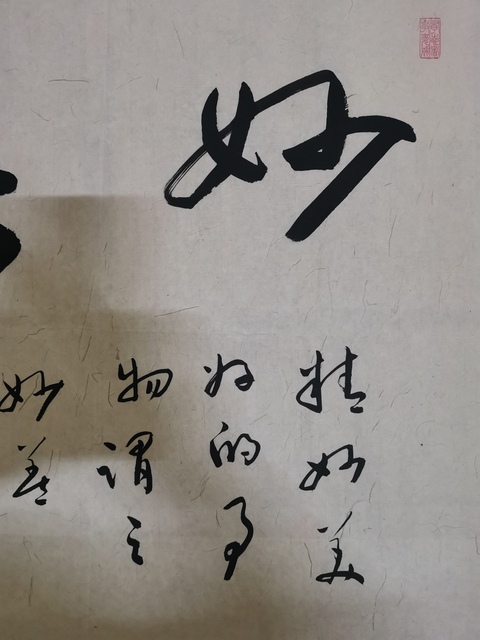 妙
精妙美
好的事
物谓之
妙善